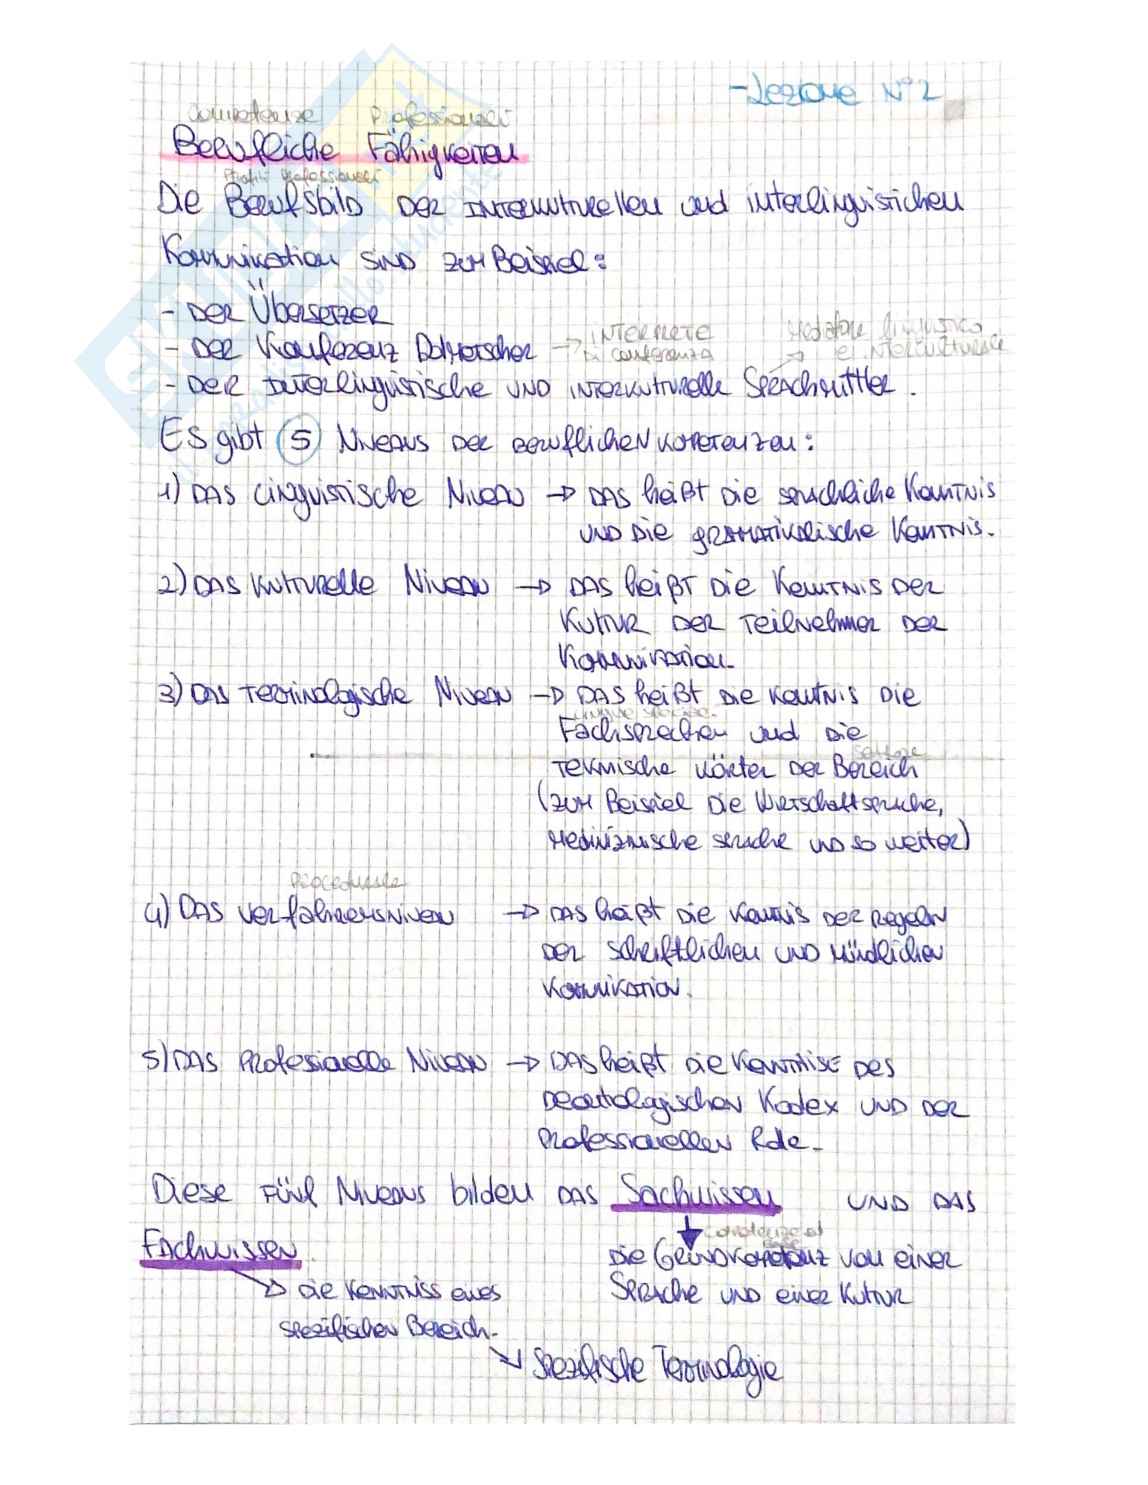 -Lezione N°2
Competenze Professionali
Berufliche Fähigkeiten
Profili professionali
Die Berufsbild DER INTERKULTURELLEN und interlinguistichen
Kommunikation SIND ZUM Beispiel:
- DER Übersetzer
- DER Konferenz Dolmetscher → INTERPRETE di conferenza
Mediatore linguistico e INTERCULTURALE
- DER INTERlinguistische UND INTERKULTURELLE Sprachmittler.
ES gibt 5 Niveaus DER BERUFlichen KOMPETENZEN:
1) DAS linguistische Niveau → DAS heißt DIE sprachliche Kenntnis
UND DIE GRAMATIKALische Kenntnis.
2) DAS KULTURELLE Niveau → DAS heißt DIE KENNTNIS DER
KULTUR DER TEILNEHMER DER
Kommunikation.
3) DAS TERMINOLOGische Niveau → DAS heißt DIE KENNTNIS DIE
lingue specia.
Fachsprachen und DIE
settore
TEKNISCHE Wörter DER Bereich
(ZUM Beispiel DIE Wirtschaftsprache,
MEDIZINISCHE sprache UND SO weiter)
Procedurale
4) DAS Verfahrensniveau → DAS heißt DIE Kenntnis DER REGELN
DER Schriftlichen UND MÜNDlichen
KOMMUNIKATION.
5) DAS Professionelle Niveau → DAS heißt DIE KENNTNISE DES
DEONTOLOGischen Kodex UND DER
Professionellen Rolle.
Diese FÜNF Niveaus bilden DAS Sachwissen UND DAS
Fachwissen.
competenze di base
DIE GRUNDKOMPETENZ VON EINER
SPRACHE UND EINER KULTUR
→ DIE KENNTNISS EINES
SPEZIFISCHEN Bereich.
→ Spezifische Terminologie